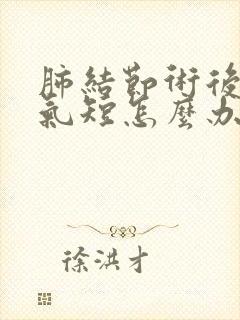 肺結節術後
氣短怎麼办
徐洪才